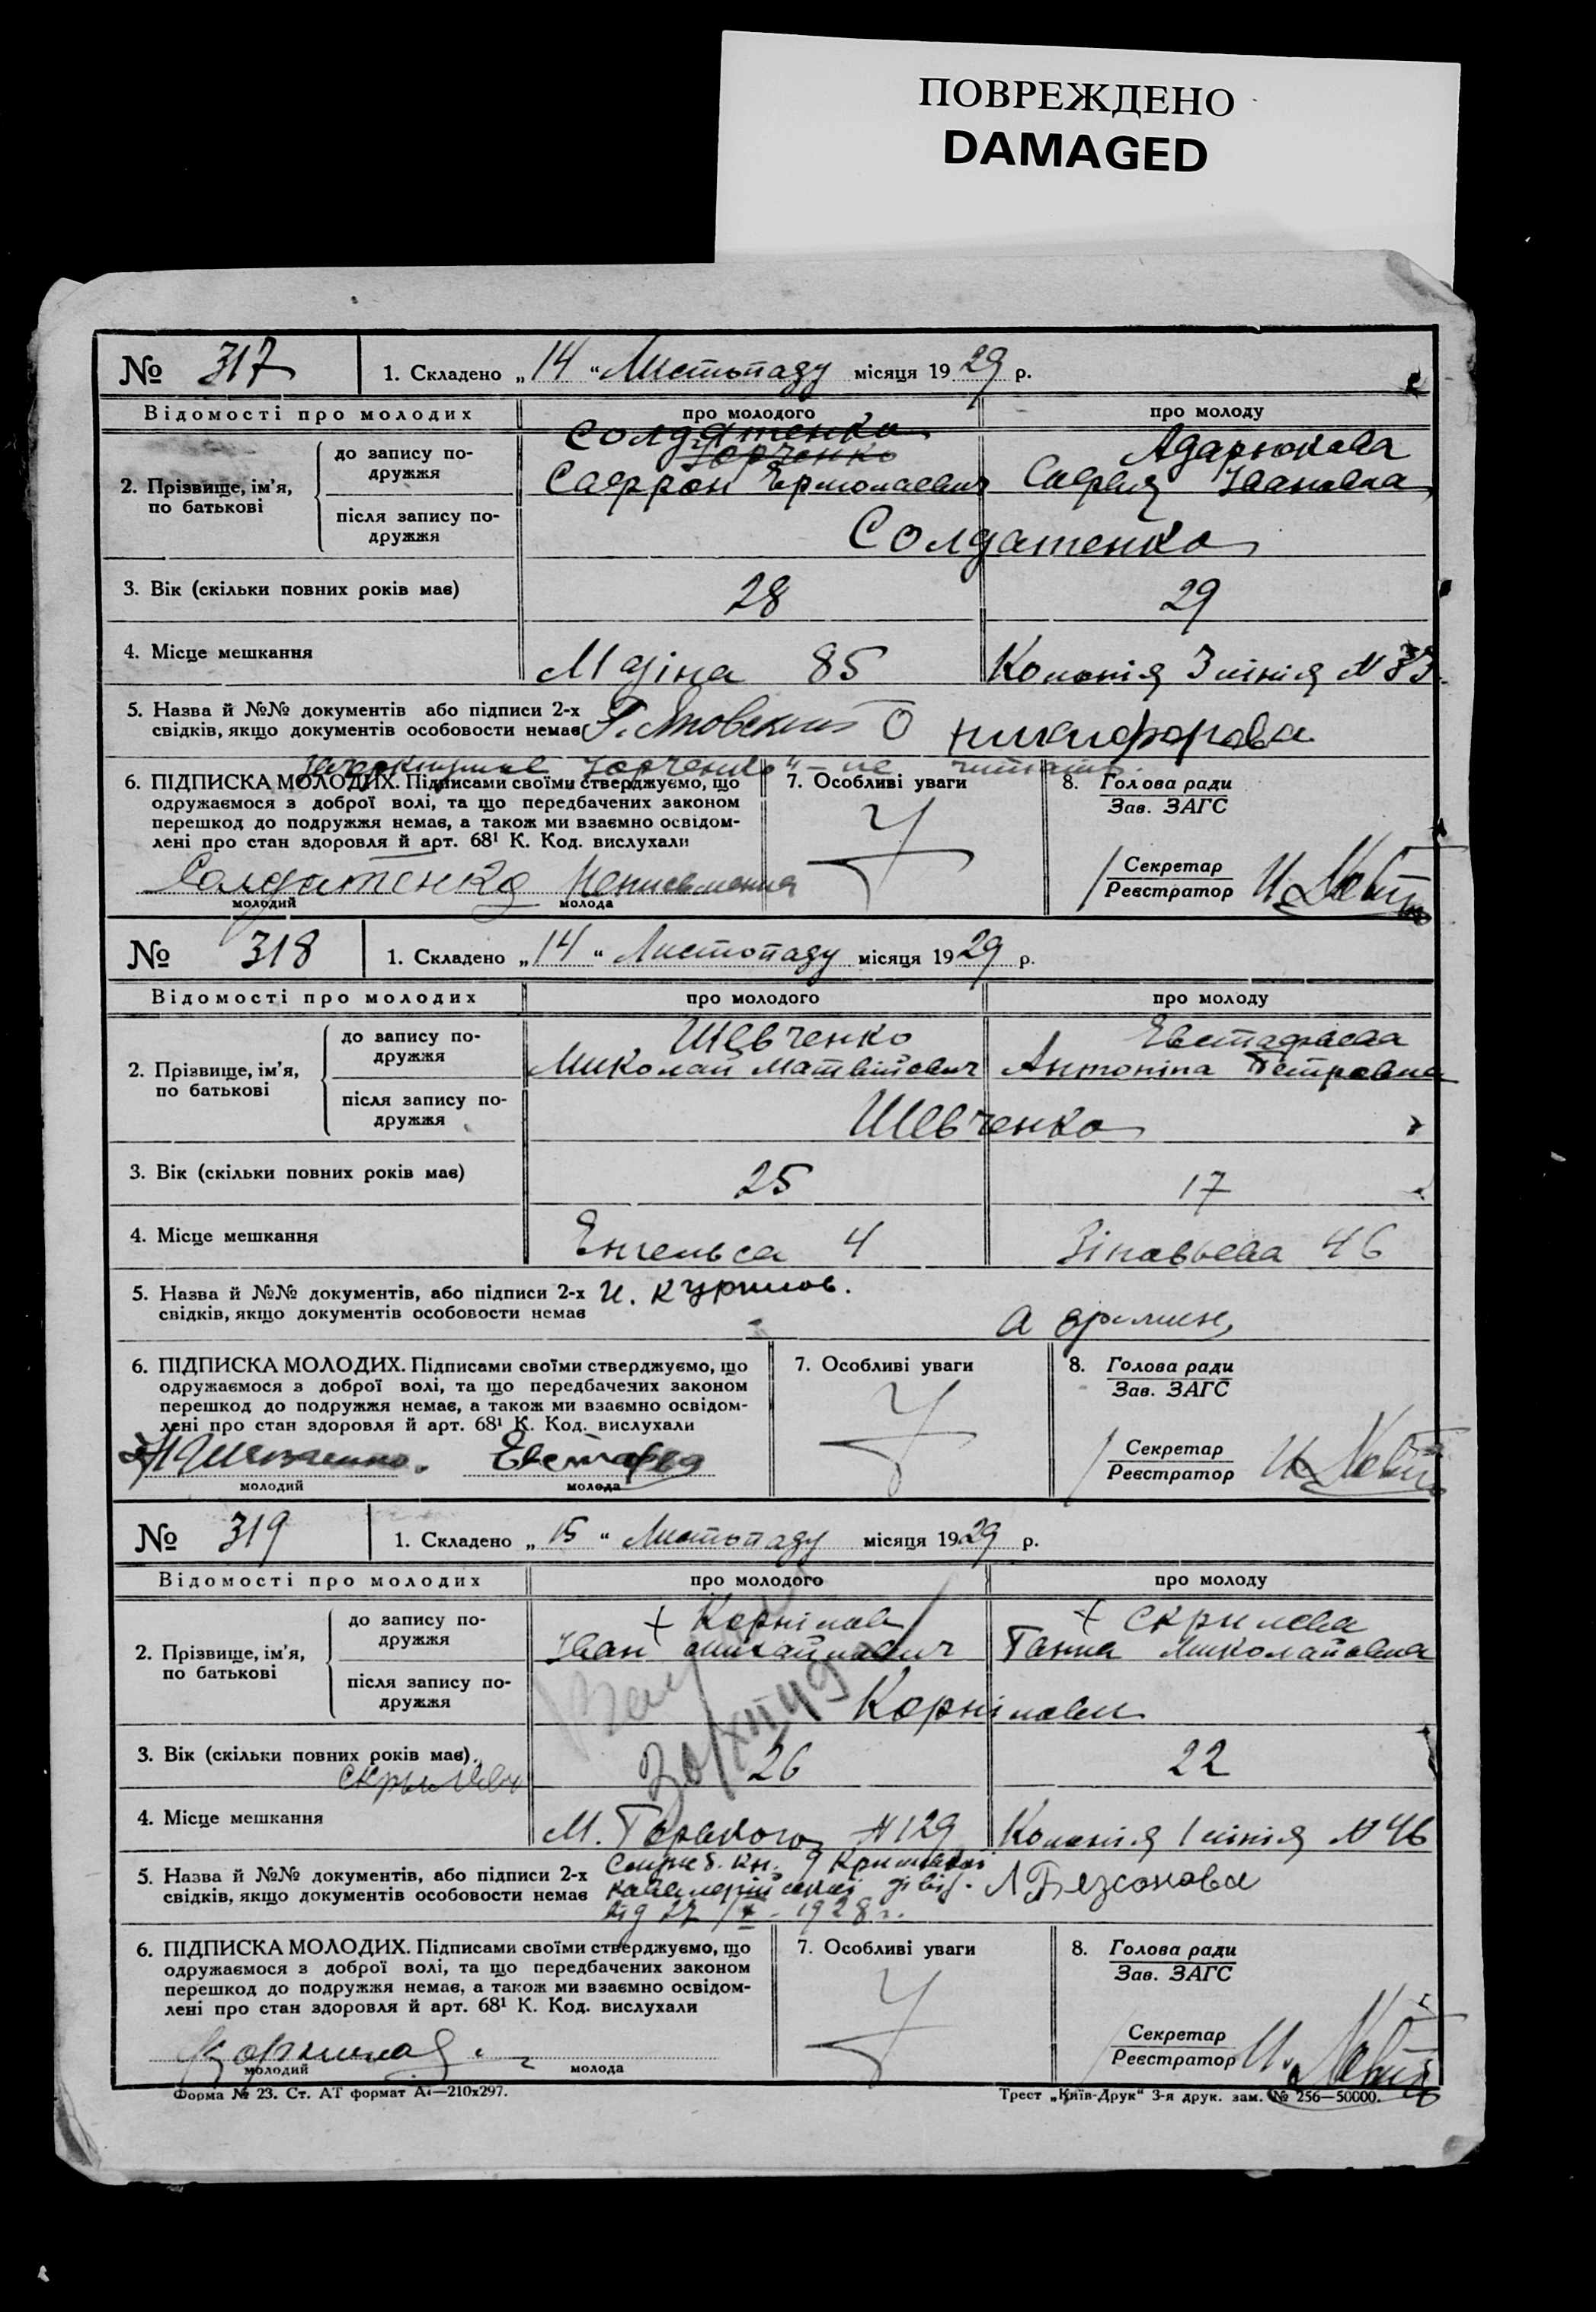 ПОВРЕЖДЕНО
DAMAGED
№ 317 1. Складено „ 14 “ Листопаду місяця 19 29 р.
Відомості про молодих про молодого про молоду
2. Прізвище, ім’я, по батькові
до запису подружжя
Солдатенко Адарюкова
Юрченко
Івановна
після запису подружжя
Солдатенко
3. Вік (скільки повних років має) 28 29
4. Місце мешкання 85 Колонія 3 лінія N
5. Назва й №№ документів або підписи 2-х
свідків, якщо документів особовости немає Никифорова
Юрченко" – не читать.
6. ПІДПИСКА МОЛОДИХ. Підписами своїми стверджуємо, що
одружаємося з доброї волі, та що передбачених законом
перешкод до подружжя немає, а також ми взаємно освідом-
лені про стан здоровля й арт. 68¹ К. Код. вислухали
Солдатенко Неписьменна
молодий молода
7. Особливі уваги
8. Голова ради
Зав. ЗАГС
Секретар
Реєстратор
№ 318 1. Складено „ 14 “ Листопаду місяця 19 29 р.
Відомості про молодих про молодого про молоду
2. Прізвище, ім’я, по батькові
до запису подружжя
Шевченко Евстафієва
Миколай Матвійович Антоніна Петровна
після запису подружжя
Шевченко
3. Вік (скільки повних років має) 25 17
4. Місце мешкання Енгельса 4 Зіновьева 46
5. Назва й №№ документів, або підписи 2-х
свідків, якщо документів особовости немає И. Курилов.
6. ПІДПИСКА МОЛОДИХ. Підписами своїми стверджуємо, що
одружаємося з доброї волі, та що передбачених законом
перешкод до подружжя немає, а також ми взаємно освідом-
лені про стан здоровля й арт. 68¹ К. Код. вислухали
молодий молода
7. Особливі уваги
8. Голова ради
Зав. ЗАГС
Секретар
Реєстратор
№ 319 1. Складено „ 15 “ Листопаду місяця 19 29 р.
Відомості про молодих про молодого про молоду
2. Прізвище, ім’я, по батькові
до запису подружжя
+ Корнілов + Скрилева
Іван Михайлович Ганна Миколаївна
після запису подружжя
Корнілови
30/XII 49
3. Вік (скільки повних років має) 26 22
4. Місце мешкання М. Горького N 129 Колонія 1 лінія N 46
5. Назва й №№ документів, або підписи 2-х
свідків, якщо документів особовости немає
Л Безсонова
1928 г.
6. ПІДПИСКА МОЛОДИХ. Підписами своїми стверджуємо, що
одружаємося з доброї волі, та що передбачених законом
перешкод до подружжя немає, а також ми взаємно освідом-
лені про стан здоровля й арт. 68¹ К. Код. вислухали
молодий молода
7. Особливі уваги
8. Голова ради
Зав. ЗАГС
Секретар
Реєстратор
Форма № 23. Ст. АТ формат А4—210х297. Трест „Київ-Друк“ 3-я друк. зам. № 256—50000.